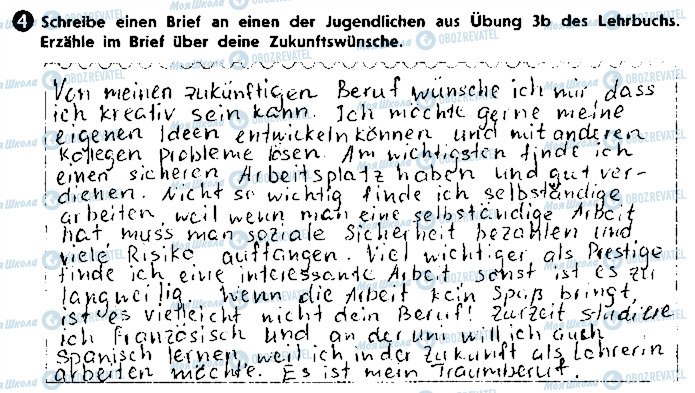 4 Schreibe einen Brief an einen der Jugendlichen aus Übung 3b des Lehrbuchs.
Erzähle im Brief über deine Zukunftswünsche.
Von meinen zukünftigen Beruf wünsche ich mir, dass
ich kreativ sein kann. Ich möchte gerne meine
eigenen Ideen entwickeln können und mit anderen
Kollegen probleme lösen. Am wichtigsten finde ich
einen sicheren Arbeitsplatz haben und gut ver-
dienen. Nicht so wichtig finde ich selbständige
arbeiten, weil wenn man eine selbständige Arbeit
hat, muss man soziale Sicherheit bezahlen und
viele Risiko auffangen. Viel wichtiger als Prestige
finde ich eine interessante Arbeit sonst ist es zu
langweilig. Wenn die Arbeit kein Spaß bringt,
ist es vielleicht nicht dein Beruf! Zurzeit studiere
ich Französisch und an der Uni will ich auch
Spanisch lernen, weil ich in der Zukunft als Lehrerin
arbeiten möchte. Es ist mein Traumberuf.